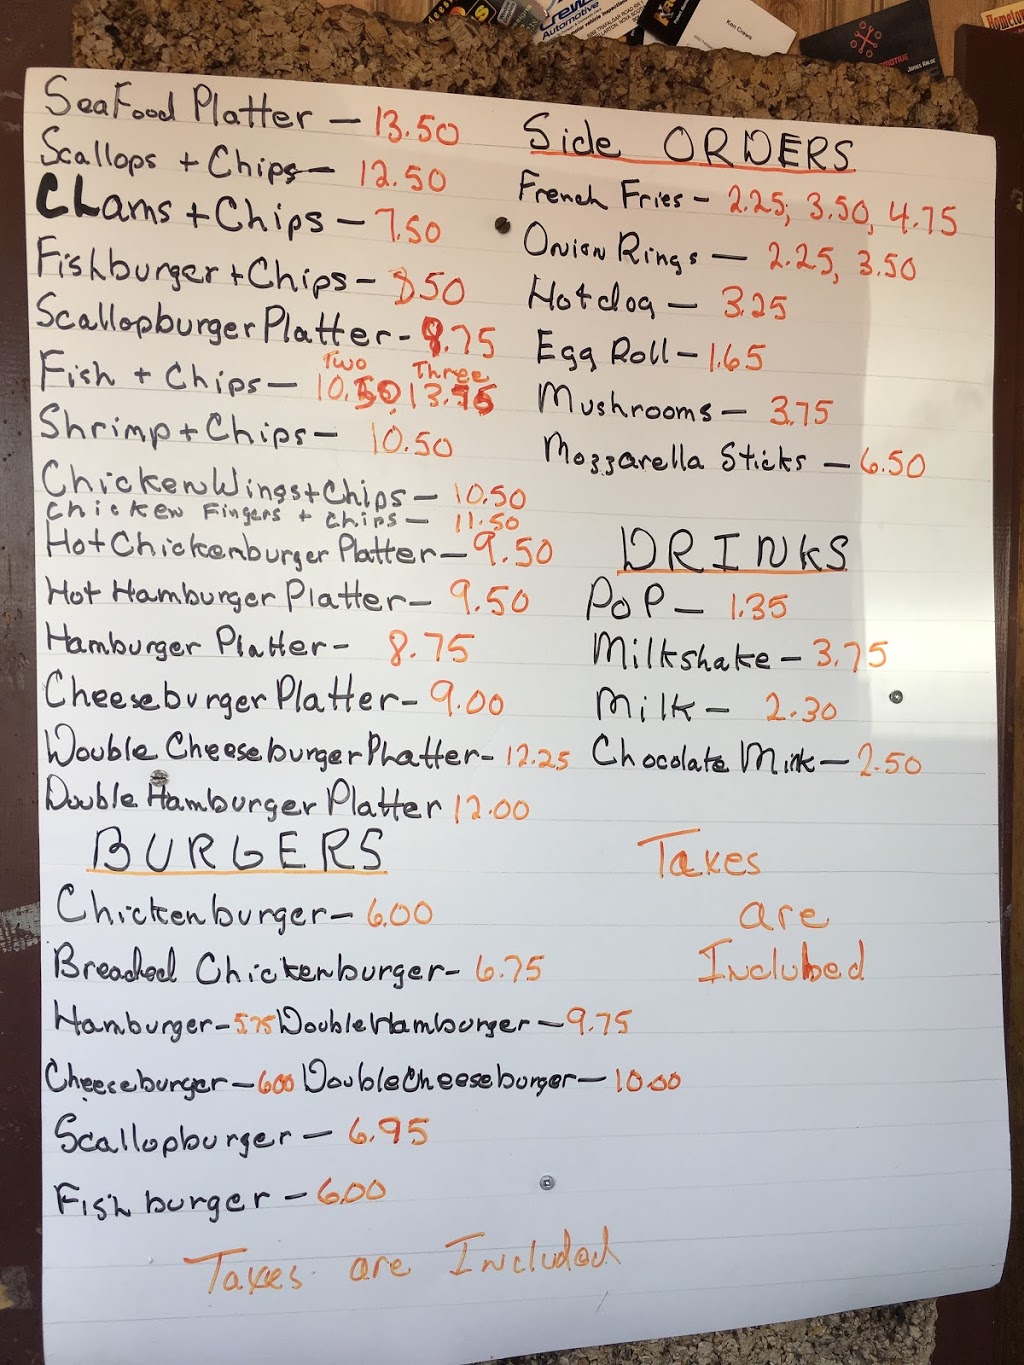 Crew
Automotive
Ken Crews
SeaFood Platter - 13.50
Scallops + Chips - 12.50
CLams + Chips - 7.50
Fishburger + Chips - 8.50
Scallopburger Platter - 9.75
Two Three
Fish + Chips - 10.50, 13.75
Shrimp + Chips - 10.50
Chicken Wings + Chips - 10.50
Chicken Fingers + Chips - 11.50
Hot Chickenburger Platter - 9.50
Hot Hamburger Platter - 9.50
Hamburger Platter - 8.75
Cheeseburger Platter - 9.00
Double Cheeseburger Platter - 12.25
Double Hamburger Platter 12.00
BURGERS
Chickenburger - 6.00
Breaded Chickenburger - 6.75
Hamburger - 5.75 Double Hamburger - 9.75
Cheeseburger - 6.00 Double Cheeseburger - 10.00
Scallopburger - 6.95
Fishburger - 6.00
Taxes are Included
Side ORDERS
French Fries - 2.25, 3.50, 4.75
Onion Rings - 2.25, 3.50
Hotdog - 3.25
Egg Roll - 1.65
Mushrooms - 3.75
Mozzarella Sticks - 6.50
DRINKS
PoP - 1.35
Milkshake - 3.75
Milk - 2.30
Chocolate Milk - 2.50
Taxes
are
Included